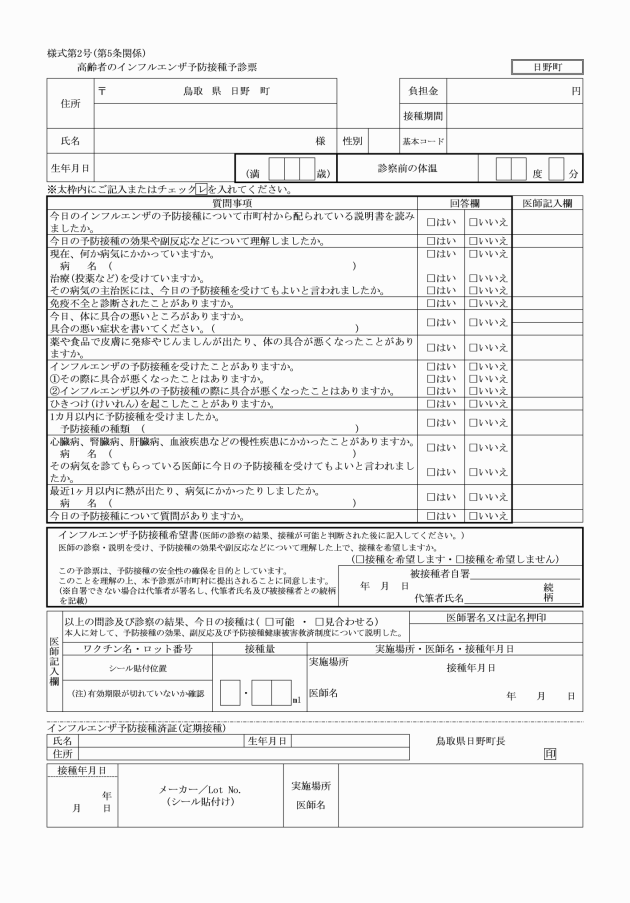 様式第2号(第5条関係)
高齢者のインフルエンザ予防接種予診票
日野町
住所
〒 鳥取 県 日野 町
負担金
円
接種期間
氏名
様
性別
基本コード
生年月日
(満 歳)
診察前の体温
度 分
※太枠内にご記入またはチェックレを入れてください。
質問事項 回答欄 医師記入欄
今日のインフルエンザの予防接種について市町村から配られている説明書を読み
ましたか。
□はい □いいえ
今日の予防接種の効果や副反応などについて理解しましたか。 □はい □いいえ
現在、何か病気にかかっていますか。 □はい □いいえ
病 名 ( )
治療(投薬など)を受けていますか。 □はい □いいえ
その病気の主治医には、今日の予防接種を受けてもよいと言われましたか。 □はい □いいえ
免疫不全と診断されたことがありますか。 □はい □いいえ
今日、体に具合の悪いところがありますか。
具合の悪い症状を書いてください。( )
□はい □いいえ
薬や食品で皮膚に発疹やじんましんが出たり、体の具合が悪くなったことがあり
ますか。
□はい □いいえ
インフルエンザの予防接種を受けたことがありますか。 □はい □いいえ
①その際に具合が悪くなったことはありますか。 □はい □いいえ
②インフルエンザ以外の予防接種の際に具合が悪くなったことはありますか。 □はい □いいえ
ひきつけ(けいれん)を起こしたことがありますか。 □はい □いいえ
1カ月以内に予防接種を受けましたか。
予防接種の種類 ( )
□はい □いいえ
心臓病、腎臓病、肝臓病、血液疾患などの慢性疾患にかかったことがありますか。
病 名 ( )
□はい □いいえ
その病気を診てもらっている医師に今日の予防接種を受けてもよいと言われまし
たか。
□はい □いいえ
最近1ヶ月以内に熱が出たり、病気にかかったりしましたか。
病 名 ( )
□はい □いいえ
今日の予防接種について質問がありますか。 □はい □いいえ
インフルエンザ予防接種希望書(医師の診察の結果、接種が可能と判断された後に記入してください。)
医師の診察・説明を受け、予防接種の効果や副反応などについて理解した上で、接種を希望しますか。
(□接種を希望します・□接種を希望しません)
この予診票は、予防接種の安全性の確保を目的としています。
このことを理解の上、本予診票が市町村に提出されることに同意します。
(※自署できない場合は代筆者が署名し、代筆者氏名及び被接種者との続柄
を記載)
被接種者自署
年 月 日
代筆者氏名
続
柄
医師記入欄
以上の問診及び診察の結果、今日の接種は( □可能 ・ □見合わせる)
本人に対して、予防接種の効果、副反応及び予防接種健康被害救済制度について説明した。
医師署名又は記名押印
ワクチン名・ロット番号 接種量 実施場所・医師名・接種年月日
シール貼付位置
(注)有効期限が切れていないか確認
・ ml
実施場所
接種年月日
医師名
年 月 日
インフルエンザ予防接種済証(定期接種)
氏名 生年月日
住所
鳥取県日野町長
印
接種年月日
年
月 日
メーカー／Lot No.
(シール貼付け)
実施場所
医師名